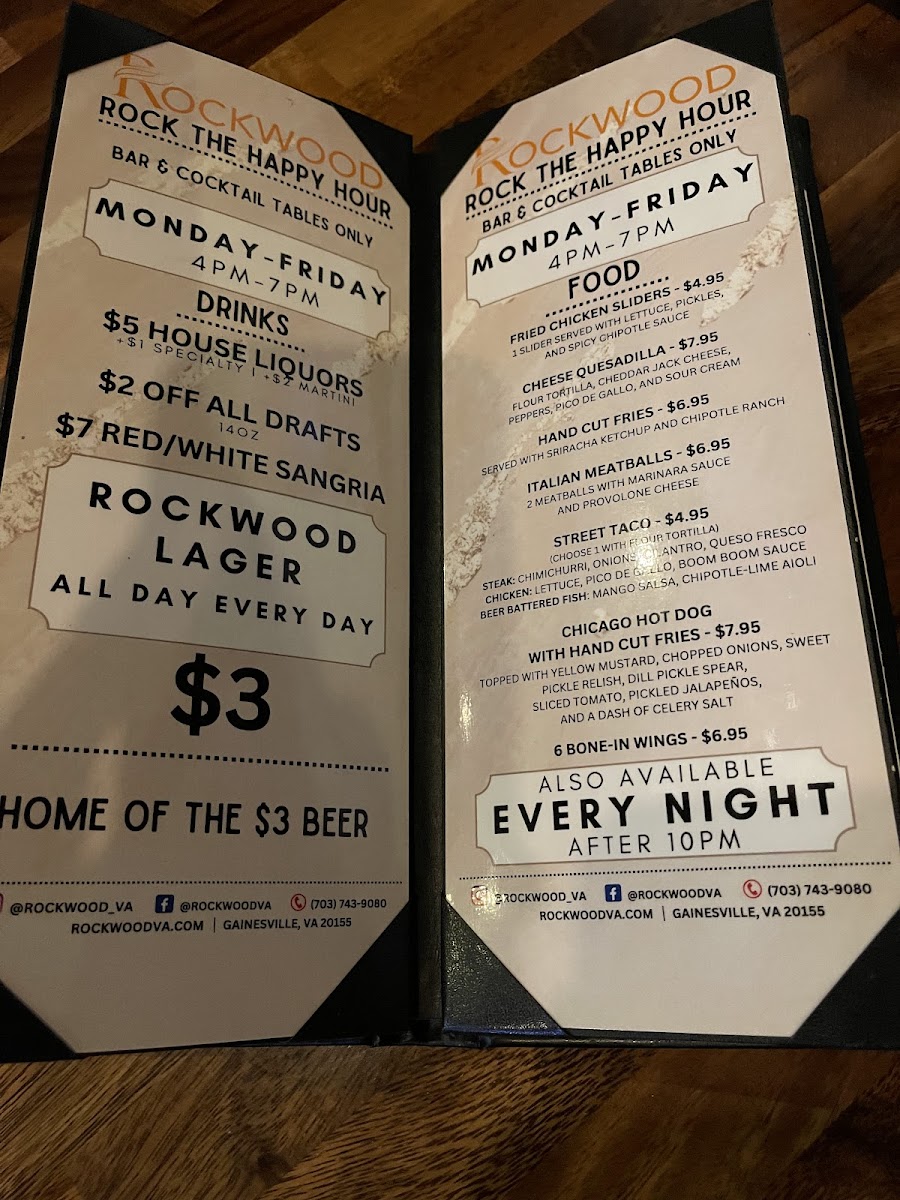 ROCKWOOD
ROCK THE HAPPY HOUR
BAR & COCKTAIL TABLES ONLY
MONDAY-FRIDAY
4PM-7PM
DRINKS
$5 HOUSE LIQUORS
+$1 SPECIALTY | +$2 MARTINI
$2 OFF ALL DRAFTS
14OZ
$7 RED/WHITE SANGRIA
ROCKWOOD
LAGER
ALL DAY EVERY DAY
$3
HOME OF THE $3 BEER
@ROCKWOOD_VA @ROCKWOODVA (703) 743-9080
ROCKWOODVA.COM | GAINESVILLE, VA 20155
ROCKWOOD
ROCK THE HAPPY HOUR
BAR & COCKTAIL TABLES ONLY
MONDAY-FRIDAY
4PM-7PM
FOOD
FRIED CHICKEN SLIDERS - $4.95
1 SLIDER SERVED WITH LETTUCE, PICKLES,
AND SPICY CHIPOTLE SAUCE
CHEESE QUESADILLA - $7.95
FLOUR TORTILLA, CHEDDAR JACK CHEESE,
PEPPERS, PICO DE GALLO, AND SOUR CREAM
HAND CUT FRIES - $6.95
SERVED WITH SRIRACHA KETCHUP AND CHIPOTLE RANCH
ITALIAN MEATBALLS - $6.95
2 MEATBALLS WITH MARINARA SAUCE
AND PROVOLONE CHEESE
STREET TACO - $4.95
(CHOOSE 1 WITH FLOUR TORTILLA)
STEAK: CHIMICHURRI, ONIONS, CILANTRO, QUESO FRESCO
CHICKEN: LETTUCE, PICO DE GALLO, BOOM BOOM SAUCE
BEER BATTERED FISH: MANGO SALSA, CHIPOTLE-LIME AIOLI
CHICAGO HOT DOG
WITH HAND CUT FRIES - $7.95
TOPPED WITH YELLOW MUSTARD, CHOPPED ONIONS, SWEET
PICKLE RELISH, DILL PICKLE SPEAR,
SLICED TOMATO, PICKLED JALAPEÑOS,
AND A DASH OF CELERY SALT
6 BONE-IN WINGS - $6.95
ALSO AVAILABLE
EVERY NIGHT
AFTER 10PM
@ROCKWOOD_VA @ROCKWOODVA (703) 743-9080
ROCKWOODVA.COM | GAINESVILLE, VA 20155